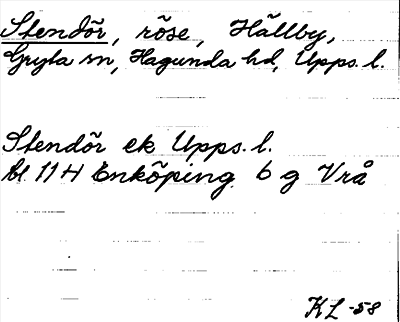 Stendör, röse, Hällby,
Gryta sn, Hagunda hd, Upps. l.
Stendör ek Upps. l.
bl 11 H Enköping 6 g Vrå
KL -58